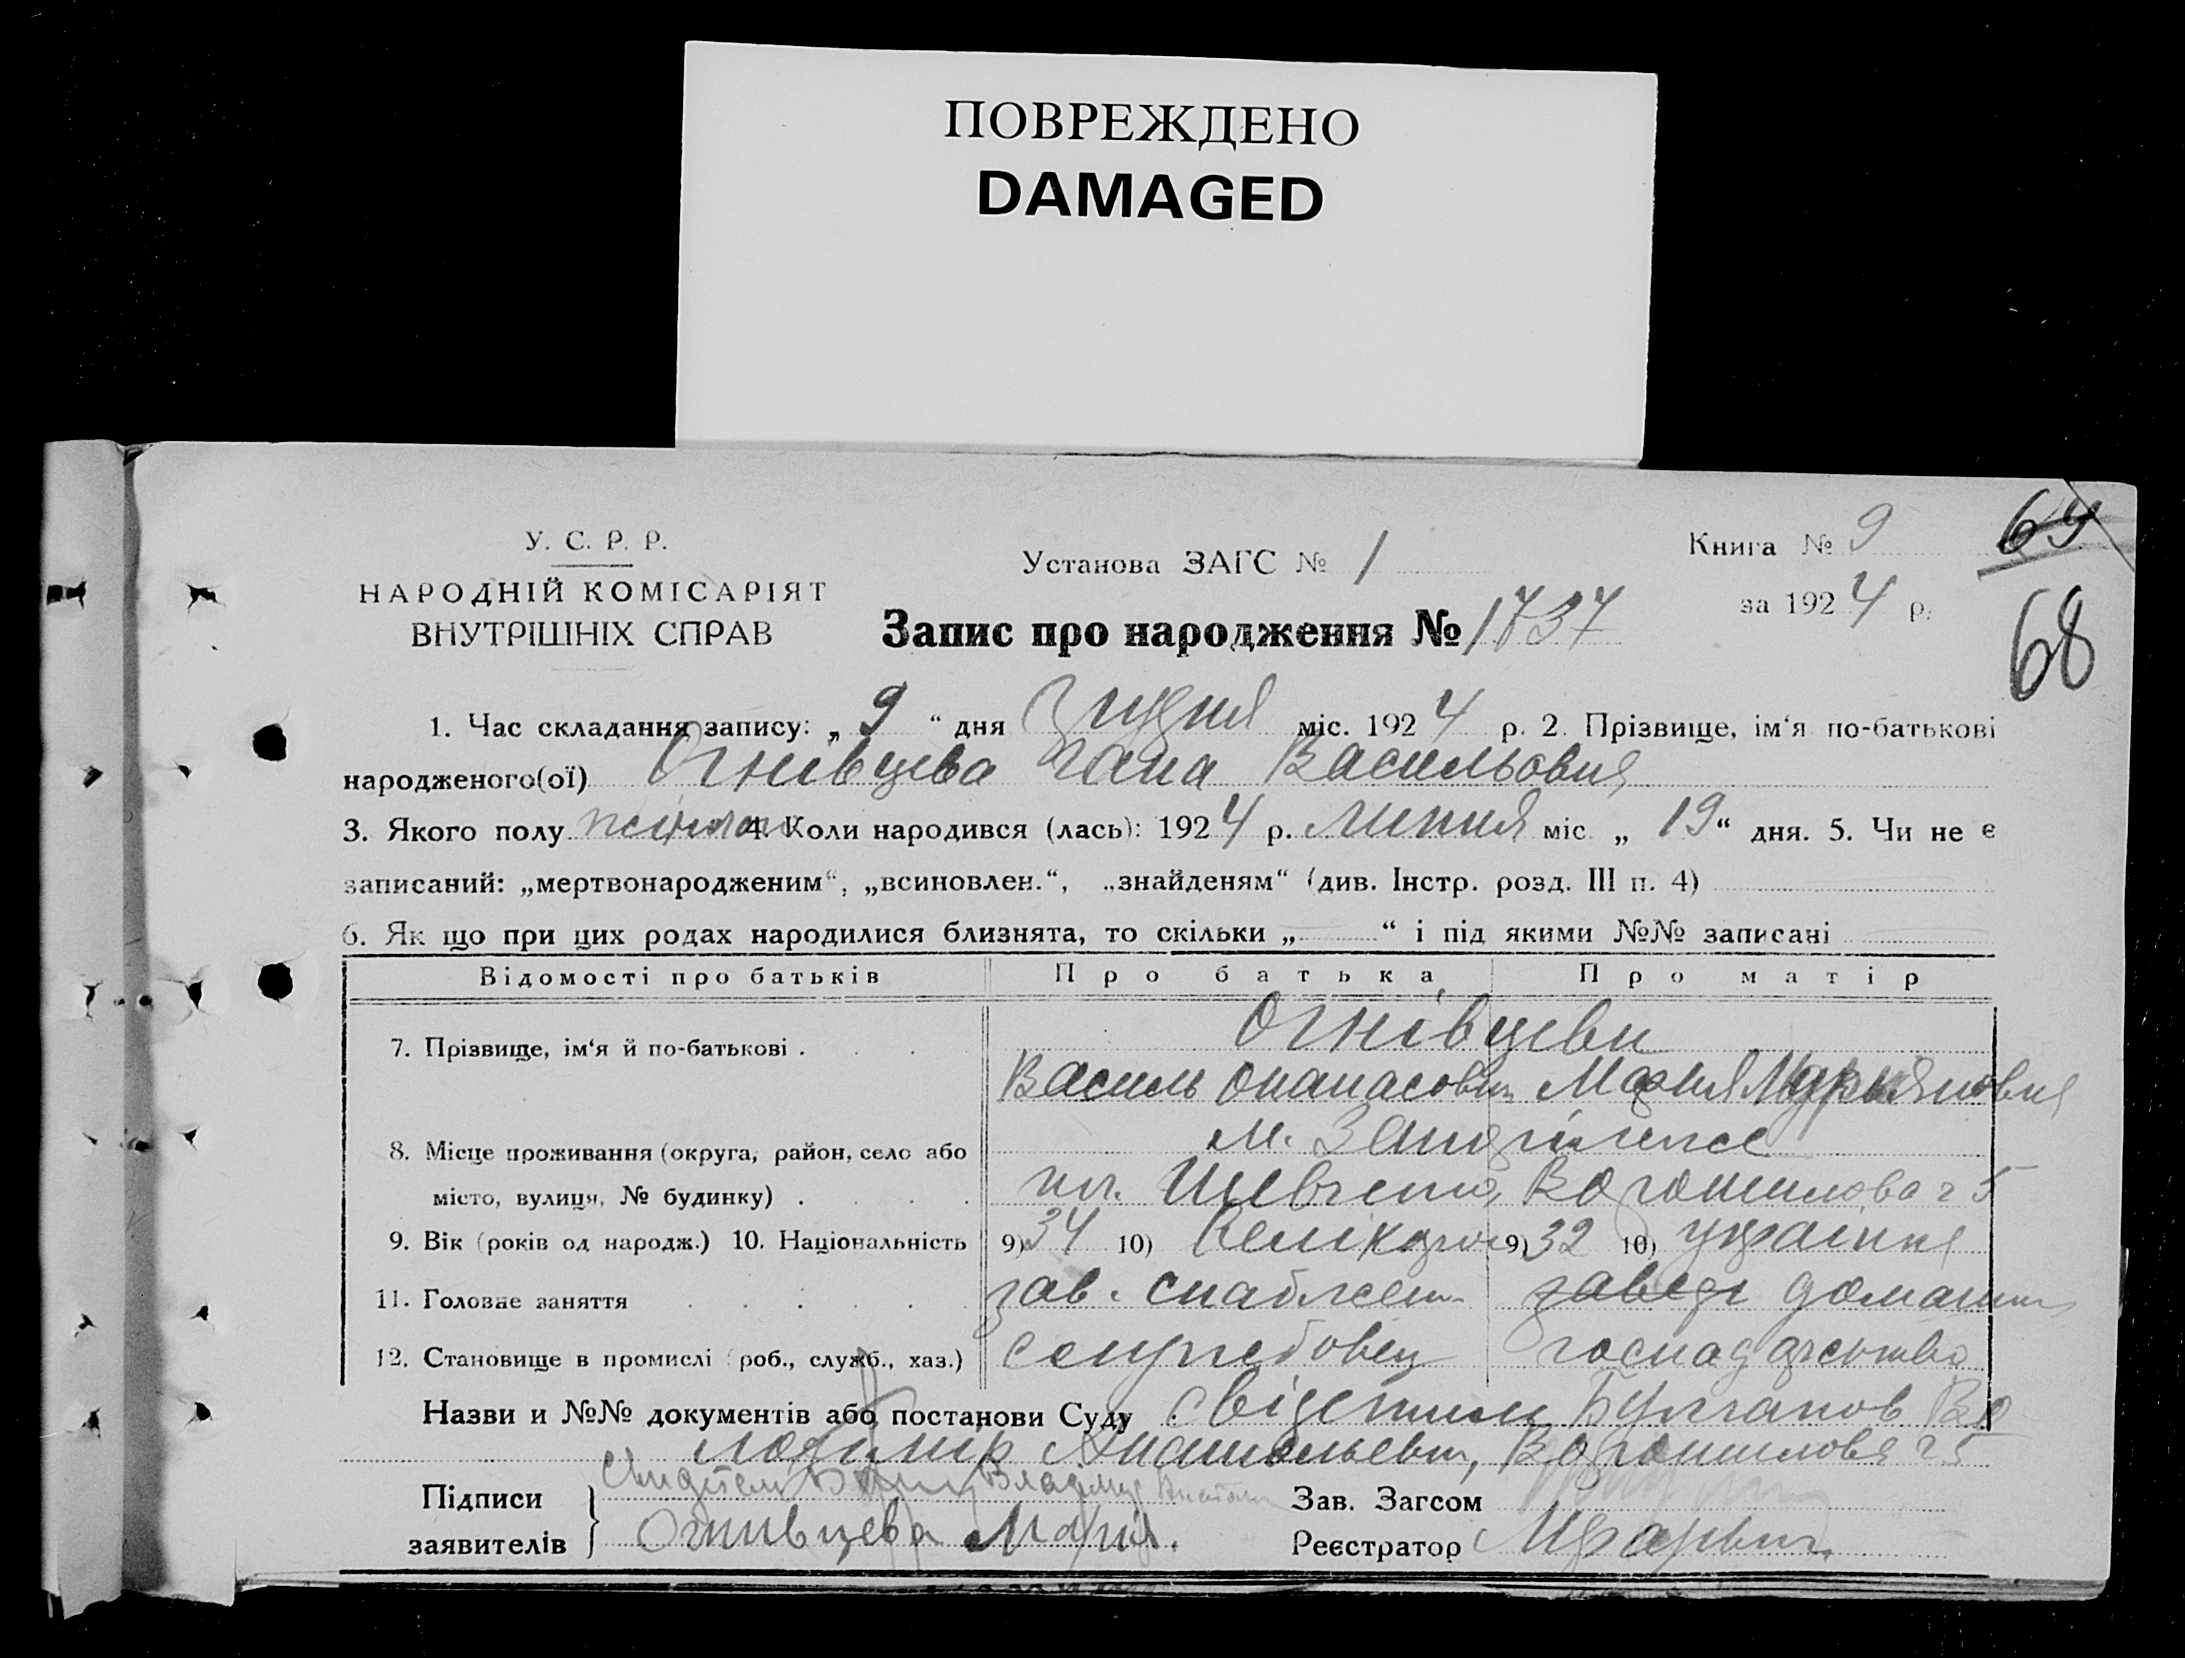 ПОВРЕЖДЕНО
DAMAGED
У. С. Р. Р.
НАРОДНІЙ КОМІСАРІЯТ
ВНУТРІШНІХ СПРАВ
Установа ЗАГС № 1
Запис про народження № 1737
Книга № 9
за 1924 р.
69
68
1. Час складання запису: „ 9 “ дня Грудня міс. 1924 р. 2. Прізвище, ім‘я по-батькові
народженого(ої) Огнівцева Гана Васильовня
3. Якого полу жіноч 4 Коли народився (лась): 1924 р. липня міс. „ 19 “ дня. 5. Чи не є
записаний: „мертвонародженим“, „всиновлен.“, „знайденям“ (див. Інстр. розд. III п. 4)
6. Як що при цих родах народилися близнята, то скільки „ “ і під якими №№ записані
Відомості про батьків Про батька Про матір
7. Прізвище, ім‘я й по-батькові . . . Огнівцеви
Василь Опанасович Марія
8. Місце проживання (округа, район, село або м. Запоріжже
місто, вулиця, № будинку) . . . пл. Шевченко, Ворошилова 25
9. Вік (років од народж.) 10. Національність 9) 34 10) Велікорос 9) 32 10) українка
11. Головне заняття . . . . . зав. снабжен завед домашнм
12. Становище в промислі (роб., служб., хаз.) службовец господарством
Назви и №№ документів або постанови Суду . свідетили Вл
Анатольевич, Ворошилова 25
Підписи заявителів
Свидетели Владимир
Огнивцева Мария.
Зав. Загсом
Реєстратор